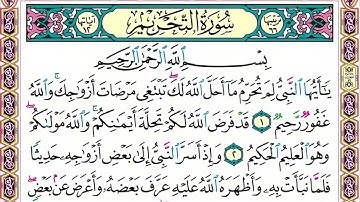 سُورَةُ التَّحْرِيمِ
بِسْمِ اللَّهِ الرَّحْمَٰنِ الرَّحِيمِ
يَا أَيُّهَا النَّبِيُّ لِمَ تُحَرِّمُ مَا أَحَلَّ اللَّهُ لَكَ ۖ تَبْتَغِي مَرْضَاتَ أَزْوَاجِكَ ۚ وَاللَّهُ
غَفُورٌ رَّحِيمٌ ١ قَدْ فَرَضَ اللَّهُ لَكُمْ تَحِلَّةَ أَيْمَانِكُمْ ۚ وَاللَّهُ مَوْلَاكُمْ ۖ
وَهُوَ الْعَلِيمُ الْحَكِيمُ ٢ وَإِذْ أَسَرَّ النَّبِيُّ إِلَىٰ بَعْضِ أَزْوَاجِهِ حَدِيثًا
فَلَمَّا نَبَّأَتْ بِهِ وَأَظْهَرَهُ اللَّهُ عَلَيْهِ عَرَّفَ بَعْضَهُ وَأَعْرَضَ عَن بَعْضٍ ۖ